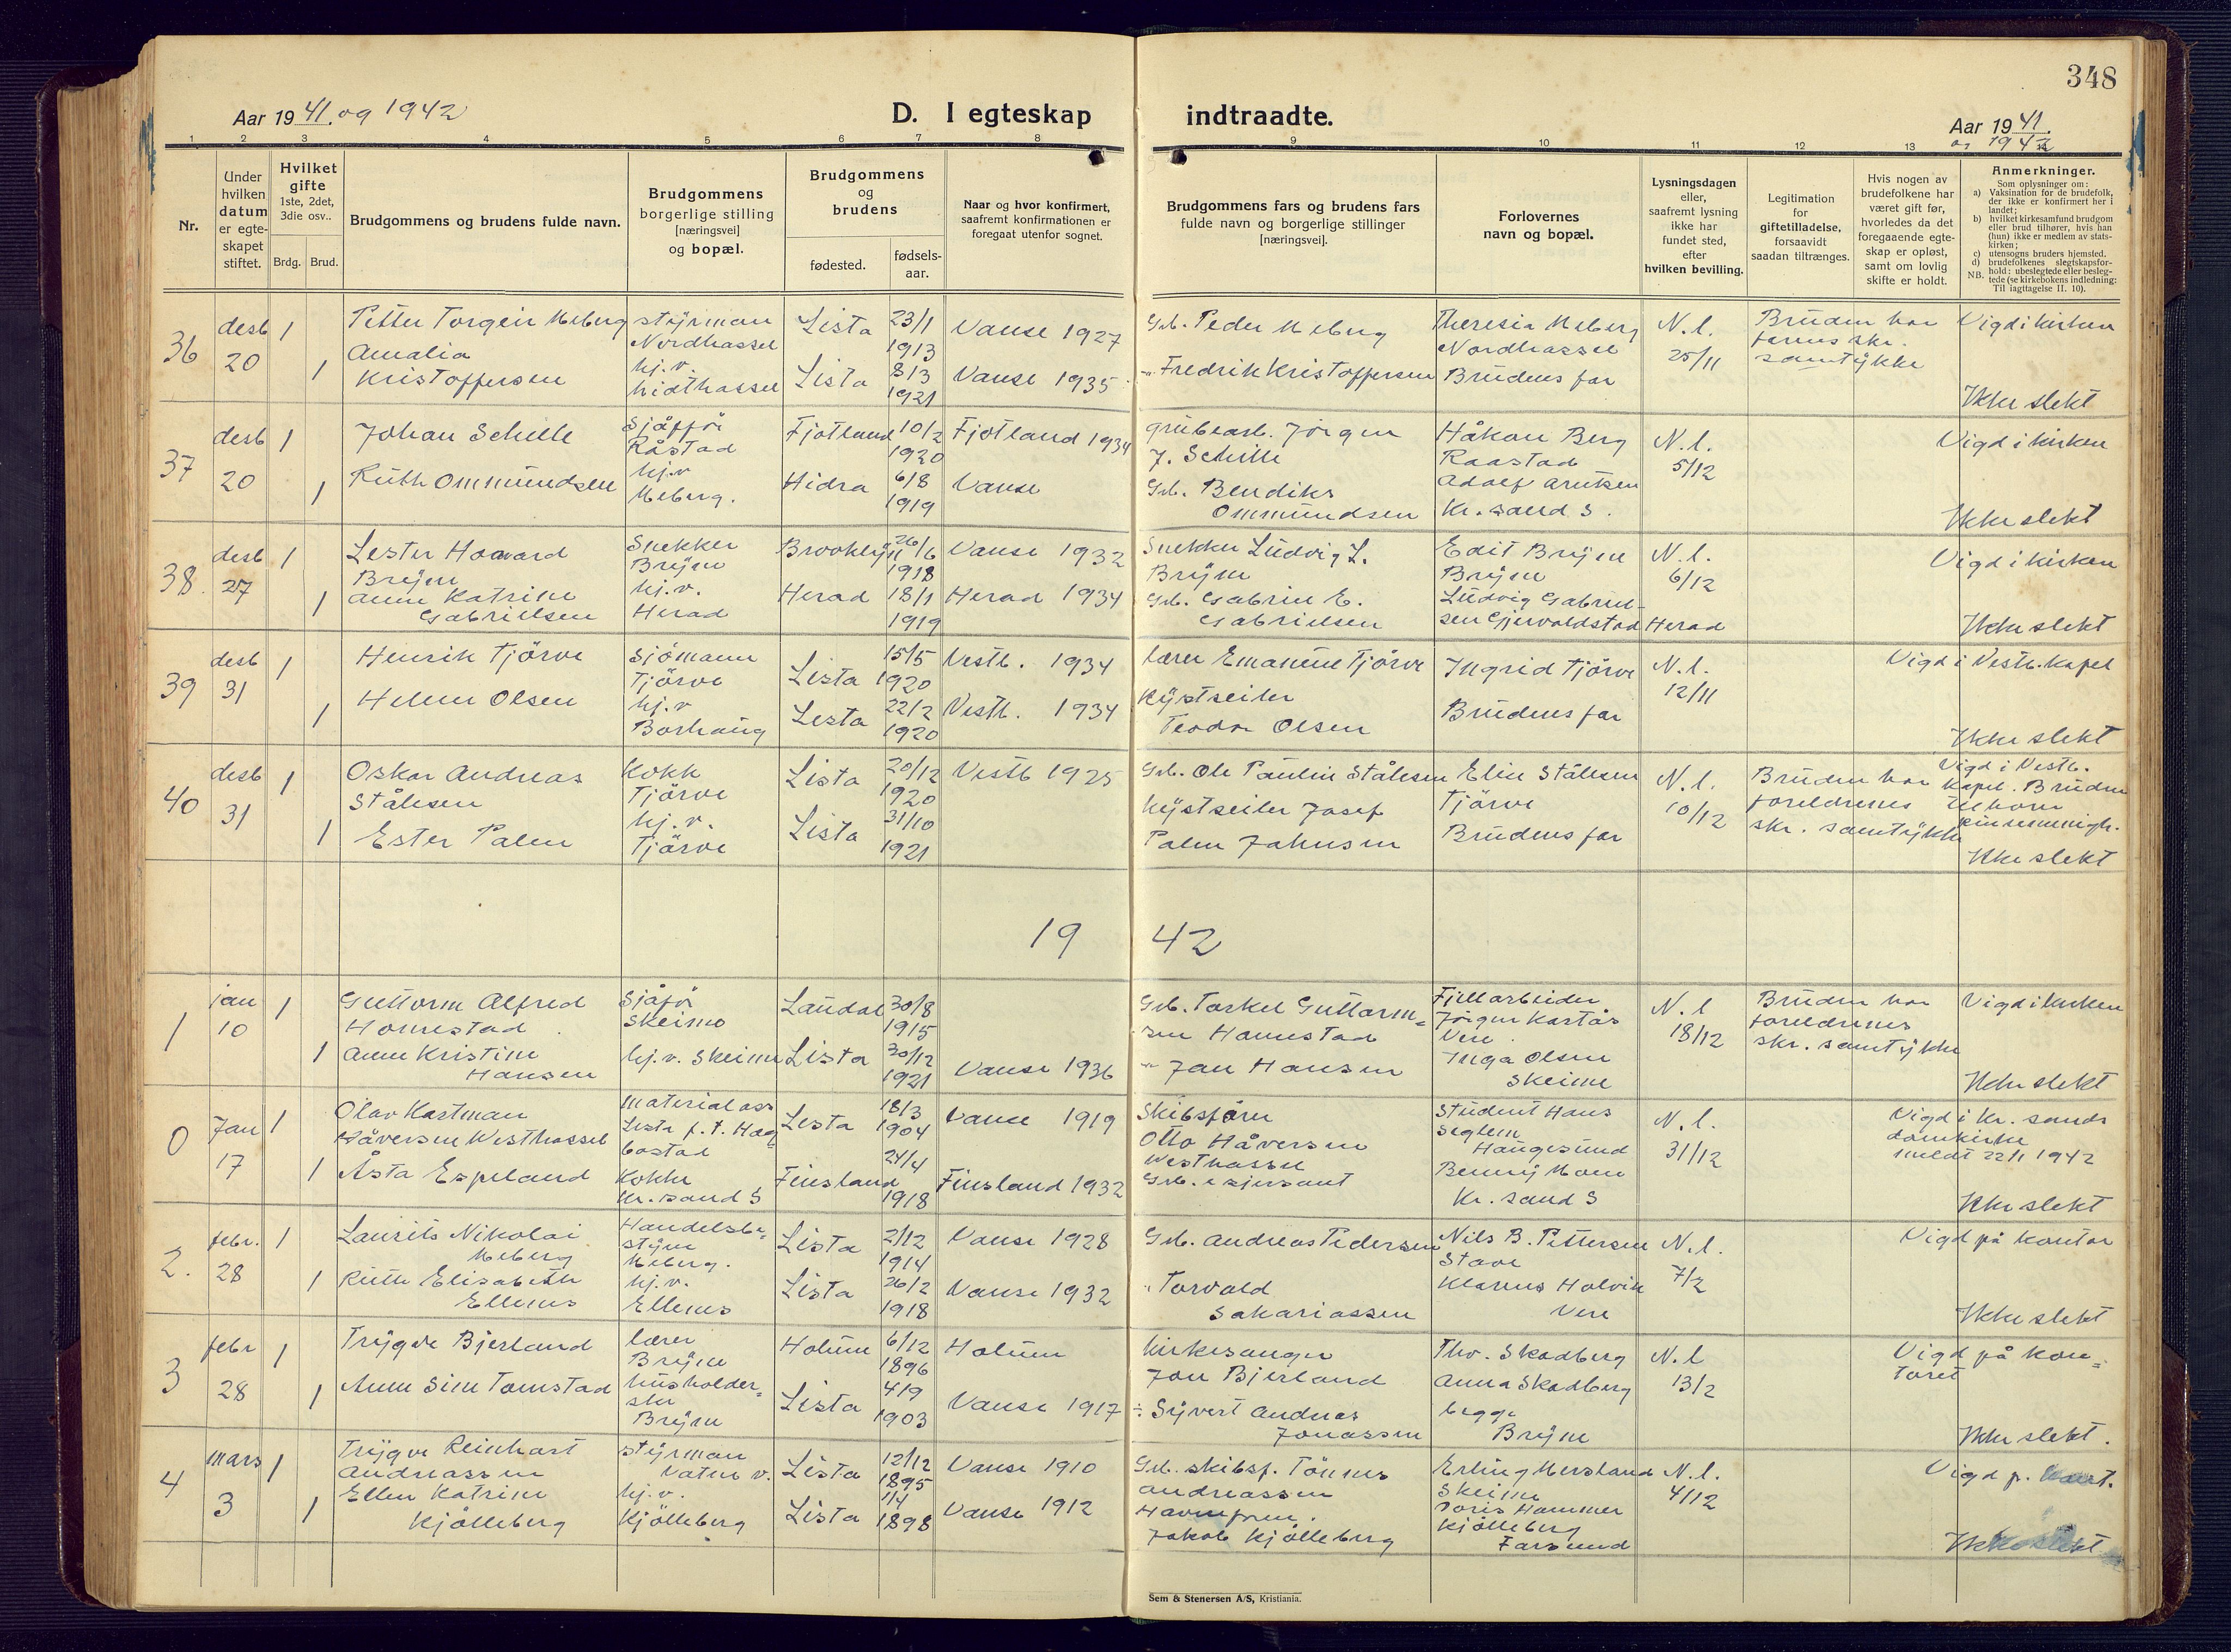 348
Aar 19 41. og 1942
D. I egteskap indtraadte.
Aar 19 41.
og 1942
1 2 3 4 5 6 7 8 9 10 11 12 13
Nr.
Under hvilken datum er egteskapet stiftet.
Hvilket gifte 1ste, 2det, 3die osv..
Brdg. Brud.
Brudgommens og brudens fulde navn.
Brudgommens borgerlige stilling [næringsvei] og bopæl.
Brudgommens og brudens
fødested. fødsels-aar.
Naar og hvor konfirmert, saafremt konfirmationen er foregaat utenfor sognet.
Brudgommens fars og brudens fars fulde navn og borgerlige stillinger [næringsvei].
Forlovernes navn og bopæl.
Lysningsdagen eller, saafremt lysning ikke har fundet sted, efter hvilken bevilling.
Legitimation for giftetilladelse, forsaavidt saadan tiltrænges.
Hvis nogen av brudefolkene har været gift før, hvorledes da det foregaaende egteskap er opløst, samt om lovlig skifte er holdt.
Anmerkninger.
Som oplysninger om:
a) Vaksination for de brudefolk, der ikke er konfirmert her i landet;
b) hvilket kirkesamfund brudgom eller brud tilhører, hvis han (hun) ikke er medlem av statskirken;
c) utensogns bruders hjemsted.
d) brudefolkenes slegtskapsforhold: ubeslegtede eller beslegtede (se kirkebokens indledning: Til iagttagelse II. 10).
NB.
36 desb 20 1 1
Petter Torgeir Meberg
Amalia
Kristoffersen
styrman
Nordhassel
hj.v.
Midthassel
Lista 23/1 1913 Vanse 1927
Lista 8/3 1921 Vanse 1935
Grb. Peder Meberg
" Fredrik Kristoffersen
Theresia Meberg
Nordhassel
Brudens far
N.l.
25/11
Bruden har
farens skr.
samtykke
Vigd i kirken
Ikke slekt
37 desb 20 1 1
Johan Schelle
Ruth Ommundsen
Sjåfför
Råstad
hj.v
Meberg.
Fjotland 10/2 1920 Fjotland 1934
Hidra 6/8 1919 Vanse
grubearb. Jörgen
J. Schelle
Grb. Bendiks
Ommundsen
Håkon Berg
Raastad
Adolf Arntsen
Kr. sand S.
N.l.
5/12
Vigd i kirken
Ikke slekt
38. desb 27 1 1
Lester Howard
Bryne
Anne Katrine
Gabrielsen
Snekker
Bryne
hj.v.
Herad
Brooklyn 26/6 1918 Vanse 1932
Herad 18/1 1919 Herad 1934
Snekker Ludvig L.
Bryne
Grb. Gabriel E.
Gabrielsen
Edit Bryne
Bryne
Ludvig Gabriel-
sen Gjervoldstad Herad
N.l.
6/12
Vigd i kirken
Ikke slekt
39 desb 31 1 1
Henrik Tjörve
Helene Olsen
Sjömann
Tjörve
hj.v
Borhaug
Lista 15/5 1920 Vestb. 1934
Lista 22/2 1920 Vestb. 1934
Lærer Emanuel Tjörve
Kystseiler
Teodor Olsen
Ingrid Tjörve
Brudens far
N.l.
12/11
Vigd i Vestb. Kapel
Ikke slekt
40 desb 31 1 1
Oskar Andreas
Stålesen
Ester Palen
Kokk
Tjörve
hj.v.
Tjörve
Lista 20/12 1920 Vestb 1925
Lista 31/10 1921
Grb. Ole Paulin Stålesen
Kystseiler Josef
Palen Johnsen
Elin Stålesen
Tjörve
Brudens far
N.l.
10/12
Bruden har
foreldrenes
skr. samtykke
Vigd i Vestb.
Kapel. Bruden
Ikke slekt
19 42
1 jan 10 1 1
Guttorm Alfred
Honnestad
Anne Kristine
Hansen
Sjåför
Skeime
hj.v. Skeime
Laudal 30/8 1915
Lista 30/12 1921 Vanse 1936
Grb. Torkel Guttorm=
sen Honnestad
" Jan Hansen
Fjellarbeider
Jörgen Kartås
Vere
Inga Olsen
Skeime
N.l
18/12
Bruden har
foreldrenes
skr. samtykke
Vigd i kirken
Ikke slekt
0 Jan 17 1 1
Olav Hartman
Håversen Westhassel
Åsta Espeland
materialass
Lista f.t. Hæg
bostad
Kokke
Kr. sand S
Lista 18/3 1904 Vanse 1919
Finsland 24/4 1918 Finsland 1932
Skibsförer
Otto Håversen
Westhassel
Student Hans
Seglem
Haugesund
Benny Moen
Kr. sand S
N.l.
31/12
Vigd i Kr. sands
domkirke
meldt 22/1 1942
Ikke slekt
2. febr. 28 1 1
Laurits Nikolai
Meberg
Ruth Elisabeth
Ellenes
Handelsbe=
styrer
Meberg.
hj.v.
Ellenes
Lista 2/12 1914 Vanse 1928
Lista 26/2 1918 Vanse 1932
Grb. Andreas Pedersen
" Torvald
Sakariassen
Nils B. Pettersen
Stave
Klarens Holvik
Vere
N.l.
7/2
Vigd på kontor
Ikke slekt
3 febr 28 1 1
Trygve Bjerland
Anne Sine Tomstad
Lærer
Bryne
husholder=
ske
Bryne
Holum 6/12 1896 Holum
Lista 4/9 1903 Vanse 1917
Kirkesanger
Jon Bjerland
Syvert Andreas
Jonassen
Tho. Skadberg
Anna Skadberg
begge
Bryne
N.l
13/2
Vigd på kon=
toret
Ikke slekt.
4 mars 3 1 1
Trygve Reinhart
Andreassen
Ellen Katrine
Kjölleberg
styrman
Vatne v.
hj.v.
Kjölleberg
Lista 12/12 1895 Vanse 1910
Lista 1/4 1898 Vanse 1912
Grb. skibsf. Tönnes
Andreassen
Havnefrem.
Jakob Kjölleberg
Erling Mersland
Skeime
Doris Hammer
Kjölleberg
Farsund
N.l.
4/12
Vigd p. kont.
Ikke slekt
Sem & Stenersen A/S, Kristiania.